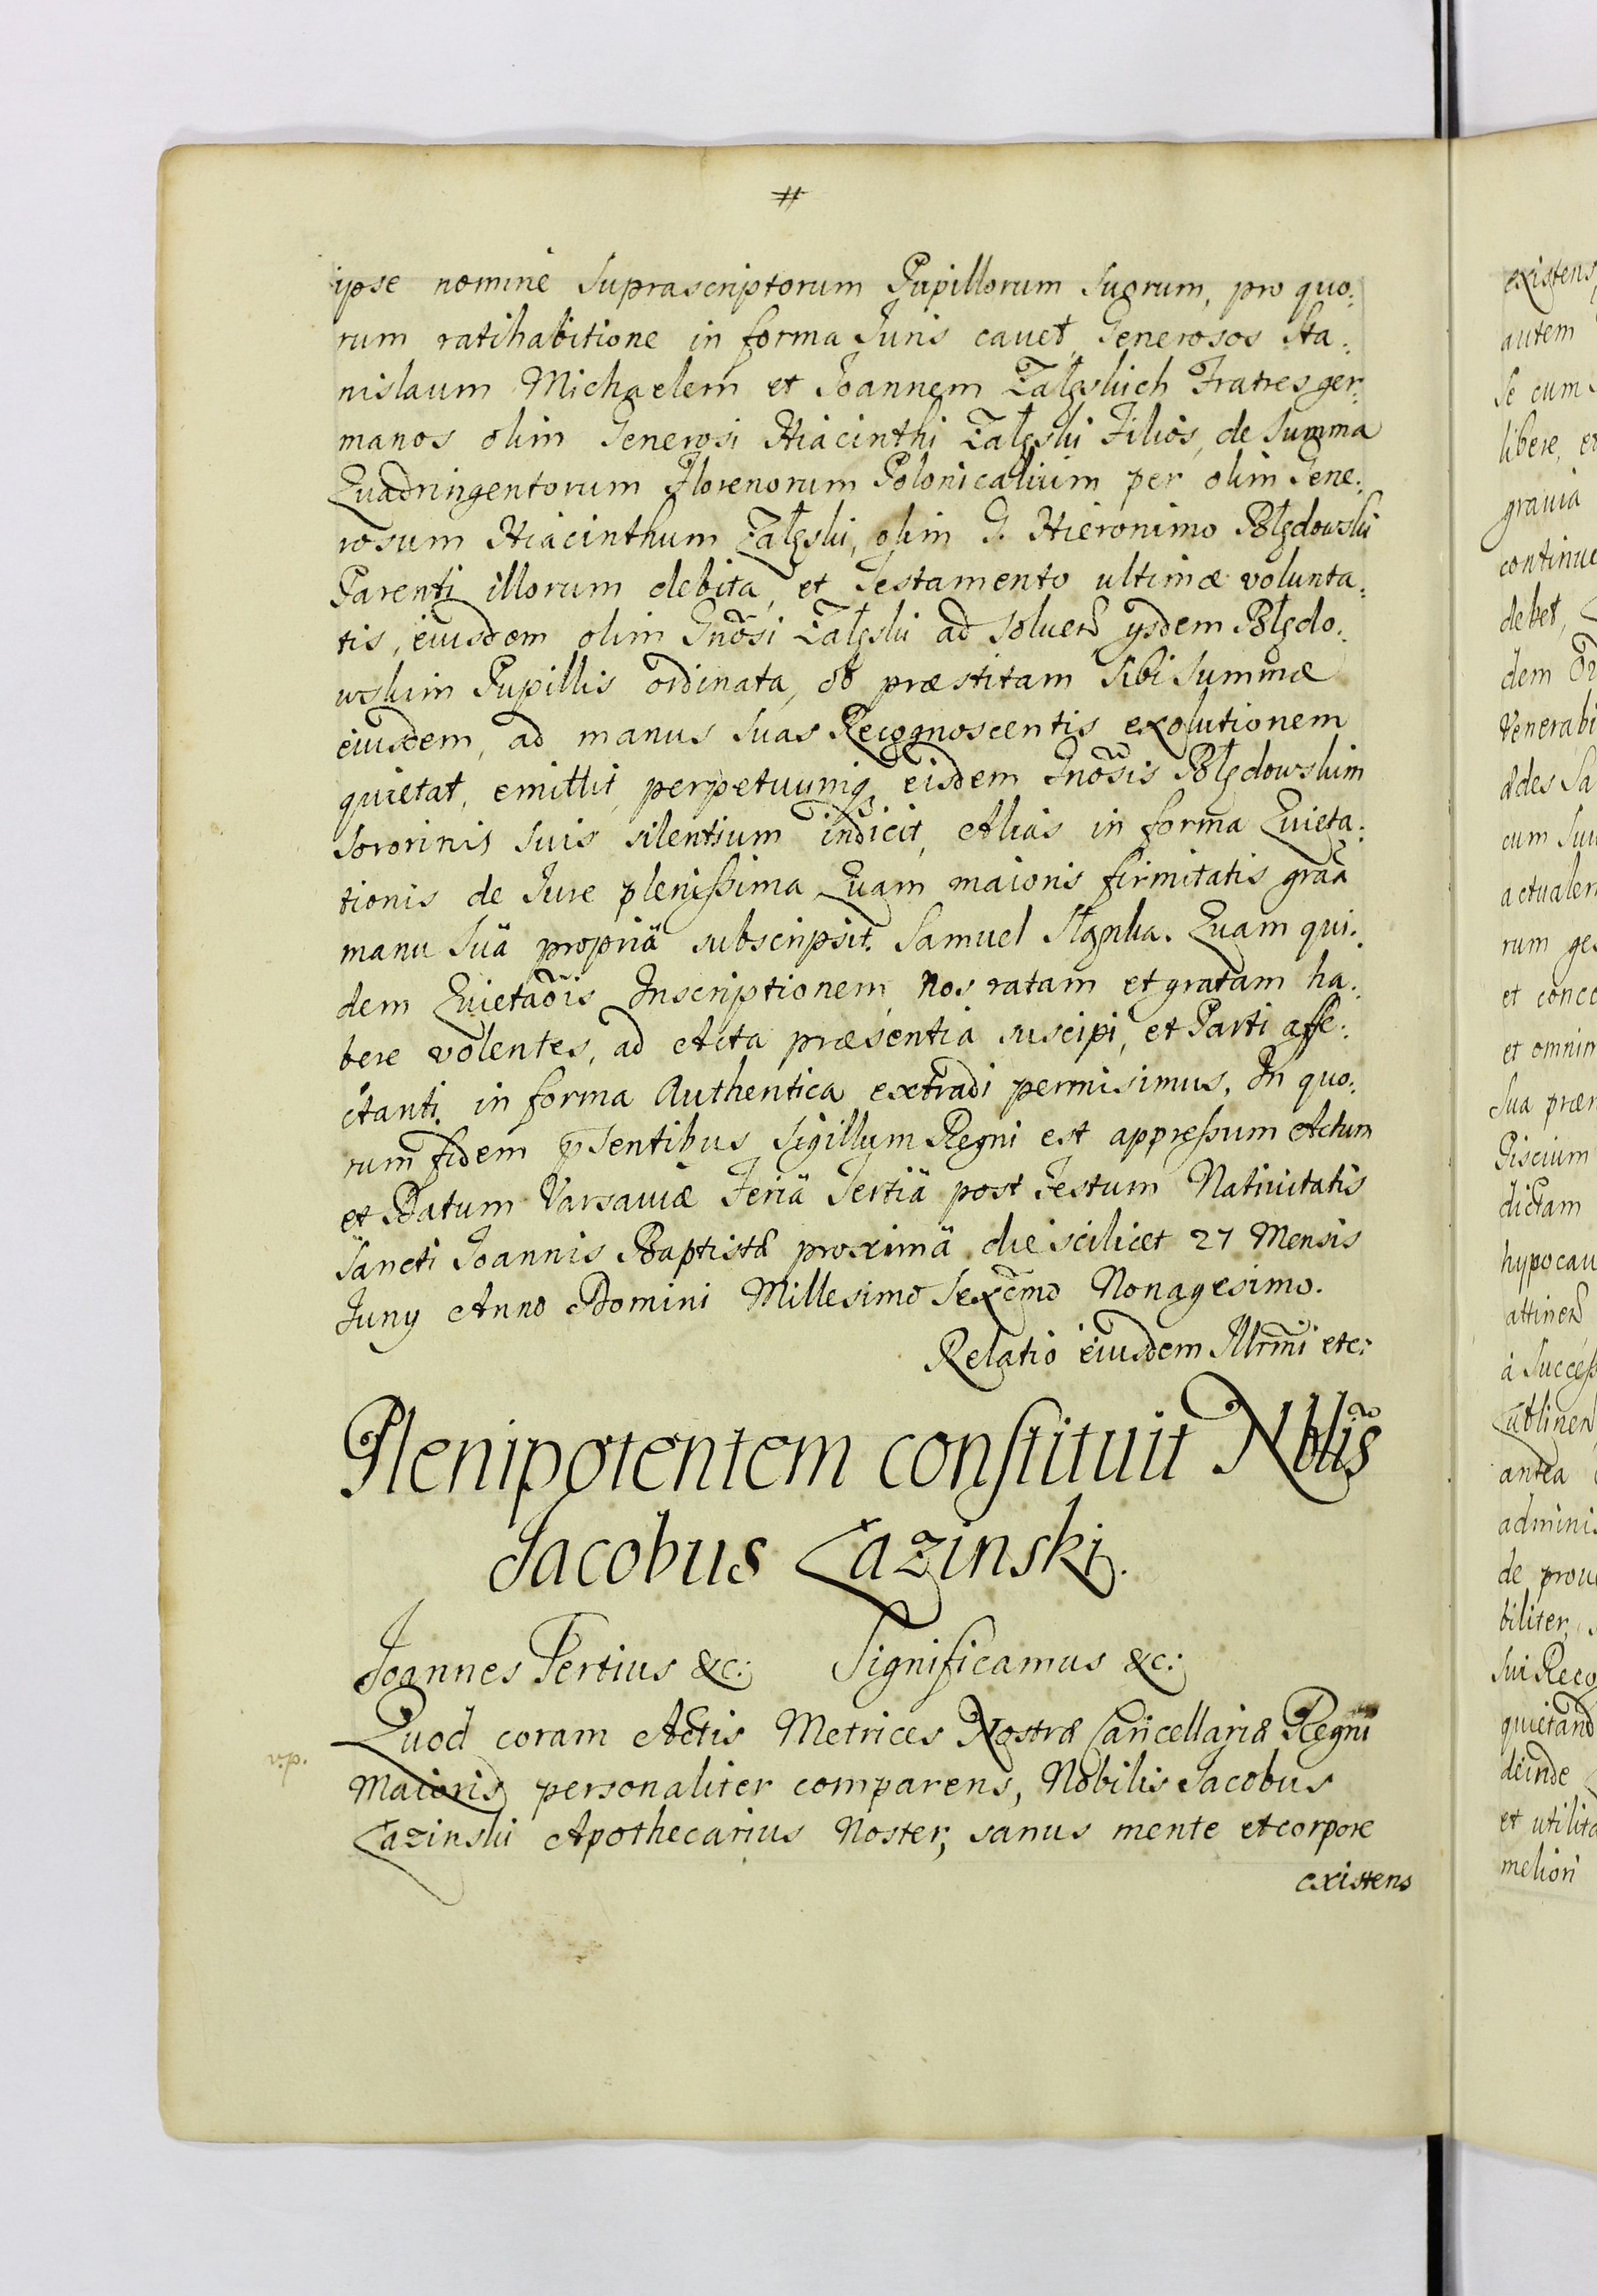 #
ipse nomine Suprascriptorum Pupillorum Suorum, pro quo:
rum ratihabitione in forma Juris cavet, Generosos Sta:
nislaum Michaelem et Joannem Załęskich Fratres ger:
manos olim Generosi Hiacinthi Załęski Filios, de Summa
Quadringentorum Florenorum Polonicalium per olim Gene:
rosum Hiacinthum Załęski, olim G. Hieronimo Błędowski
Parenti illorum debita, et Testamento ultimæ volunta:
tis, eiusdem olim Gnõsi Załęski ad solven̄ ysdem Błędo:
wskim Pupillis ordinata, ob præstitam sibi Summæ
eiusdem, ad manus suas Recognoscentis exolutionem
quietat, emittit, perpetuumq, eisdem Gnõsis Błędowskim
Sororinis Suis silentium indicit, Alias in forma Quieta:
tionis de Jure plenissima Quam maioris firmitatis grãa
manu Suä propriä subscripsit. Samuel Stępka. Quam qui:
dem Quietaõis Inscriptionem Nos ratam et gratam ha:
bere volentes, ad Acta præsentia suscipi, et Parti affe:
ctanti in forma Authentica extradi permisimus. In quo:
rum fidem p̄sentibus Sigillum Regni est appressum Actum
et Datum Varsaviæ Feriä Tertiä post Festum Nativitatis
Sancti Joannis Baptistæ proximä die scilicet 27 Mensis
Juny Anno Domini Millesimo Sexc̃mo Nonagesimo.
Relatio eiusdem Illrmĩ etc:
Plenipotentem constituit Nbliš
Jacobus Łazinski.
Joannes Tertius &c: Significamus &c:
Quod coram Actis Metrices Nostræ Cancellariæ Regni
v.p.
Maioris personaliter comparens, Nobilis Jacobus
Łazinski Apothecarius Noster, sanus mente et corpore
existens
existens
autem
se cum
libere, et
gravia
continue
debet,
dem
Venerabi
ddes Sa
cum Su
actualem
rum ges
et conce
et omnim
Sua præ
Piscium
dictam
hypocau
attinen̄
à Success
Lublinen
antea
adminis
de prov
biliter,
sui Reco
quietand
deinde
et utilita
meliori